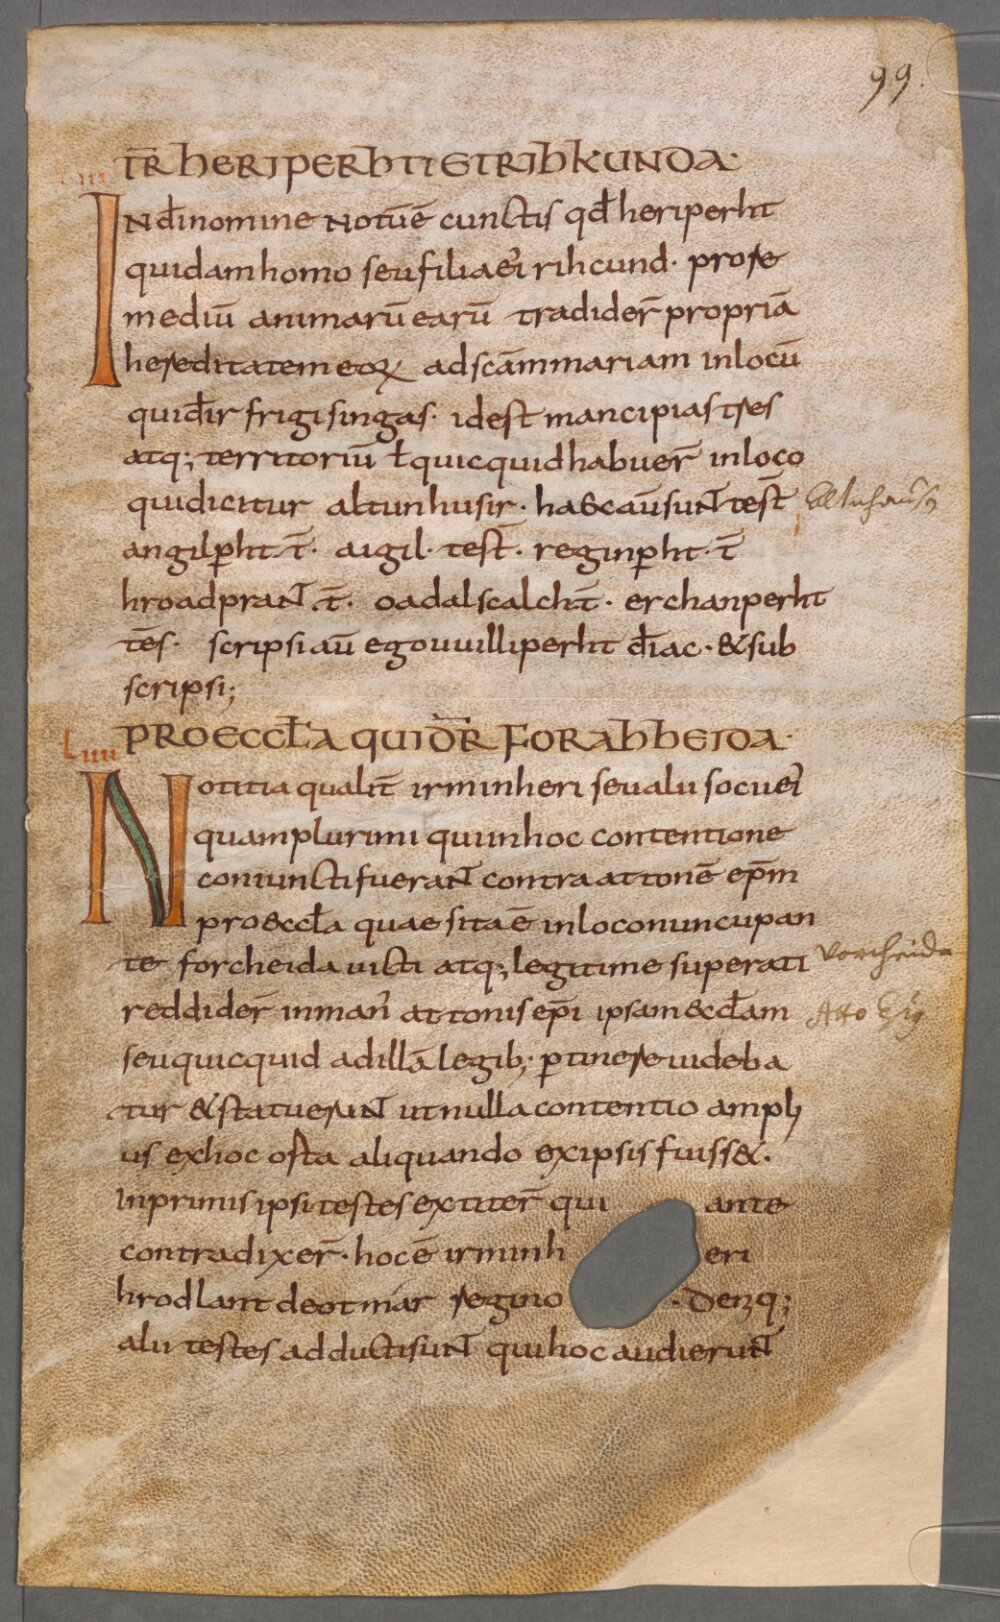 99.
TR̄ HERIPERHTI ET RIHKUNDA·
IN dī nomine Notū ē cunctis qđ heriperht
quidam homo seu filia eī rihcund· pro re
mediū animarū earū tradider̄ propriā
hereditatem eoꝝ ad scām mariam in locū
qui dīr frigisingas· id est mancipias tres
atq; territoriū ł quicquid habuer̄ in loco
qui dicitur altunhusir· haec aū sunt test̄
angilꝑht· t̄· aigil· test̄· reginꝑht· t̄
hroadprant· t̄· oadalscalch t̄· erchanperht
tēs· scripsi aū ego uuilliperht diāc· & sub
scripsi;
Liiii PRO ECCLA QUI DR̄ FORAHHEIDA·
Notitia qualit̄ irminheri seu alii socii eī
quam plurimi qui in hoc contentione
coniuncti fuerant contra attonē ep̄m
pro eccła quae sita ē in loco nuncupan
te forcheida uicti atq; legitime superati
Vorcheida
reddider̄ in man̄ attonis ep̄i ipsam eccłam
seu quicquid ad illā legib; ꝑtinere uideba
tur & statuerunt ut nulla contentio ampli
us ex hoc osta aliquando ex ipsis fuiss&·
Inprimis ipsi testes extiter̄ qui ante
contradixer̄· hoc ē irminheri
hrodlant deotmar regino· Denq;
alii testes adducti sunt qui hoc audierunt